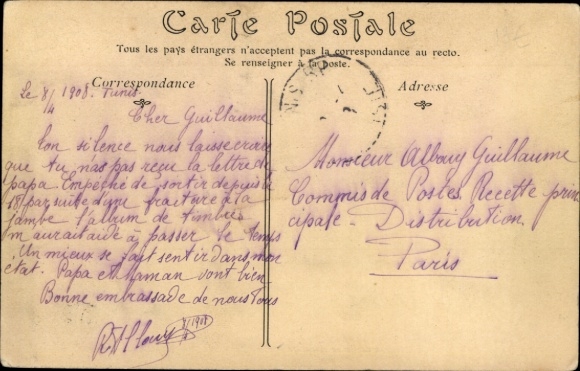 Carte Postale
Tous les pays étrangers n'acceptent pas la correspondance au recto.
Se renseigner à la poste.
Correspondance
Adresse
Le 8/4 1908. Tunis
Cher Guillaume
Ton silence nous laisse croire
que tu n'as pas reçu la lettre de
papa. Empêché de sortir depuis
par suite d'une fraiture à la
jambe l'album de timbres
m'aurait aidé à passer le temps
Un mieux se fait sentir dans mon
etat. Papa et Maman vont bien
Bonne embrassade de nous tous
Monsieur Albouy Guillaume
Commis de Postes Recette prin
cipale - Distribution
Paris